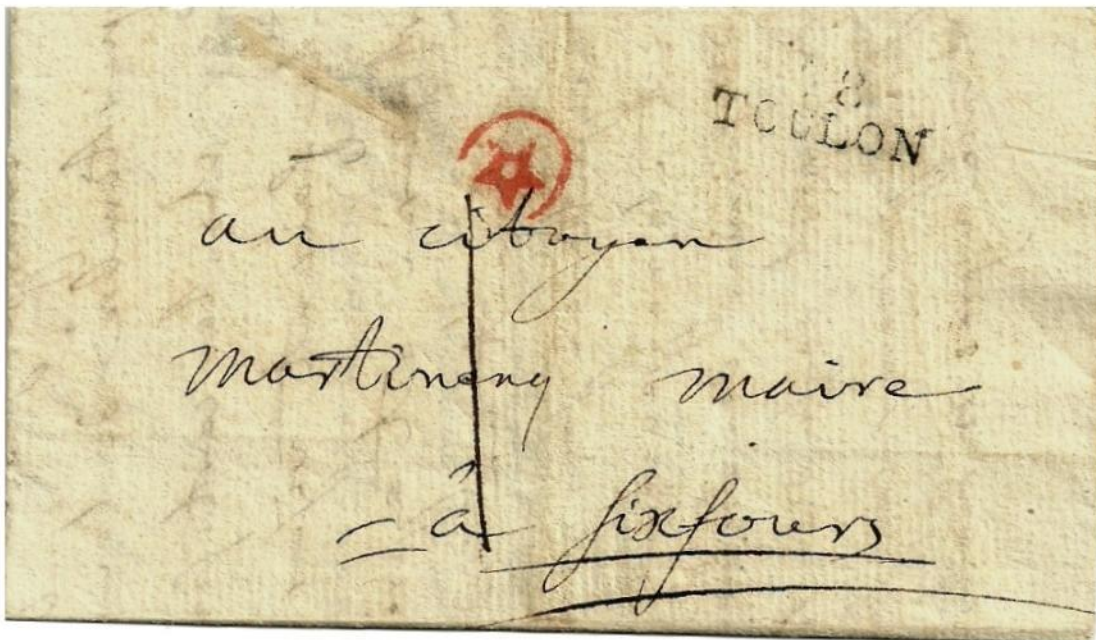 78
TOULON
au citoyen
Martinenq maire
à Sixfours